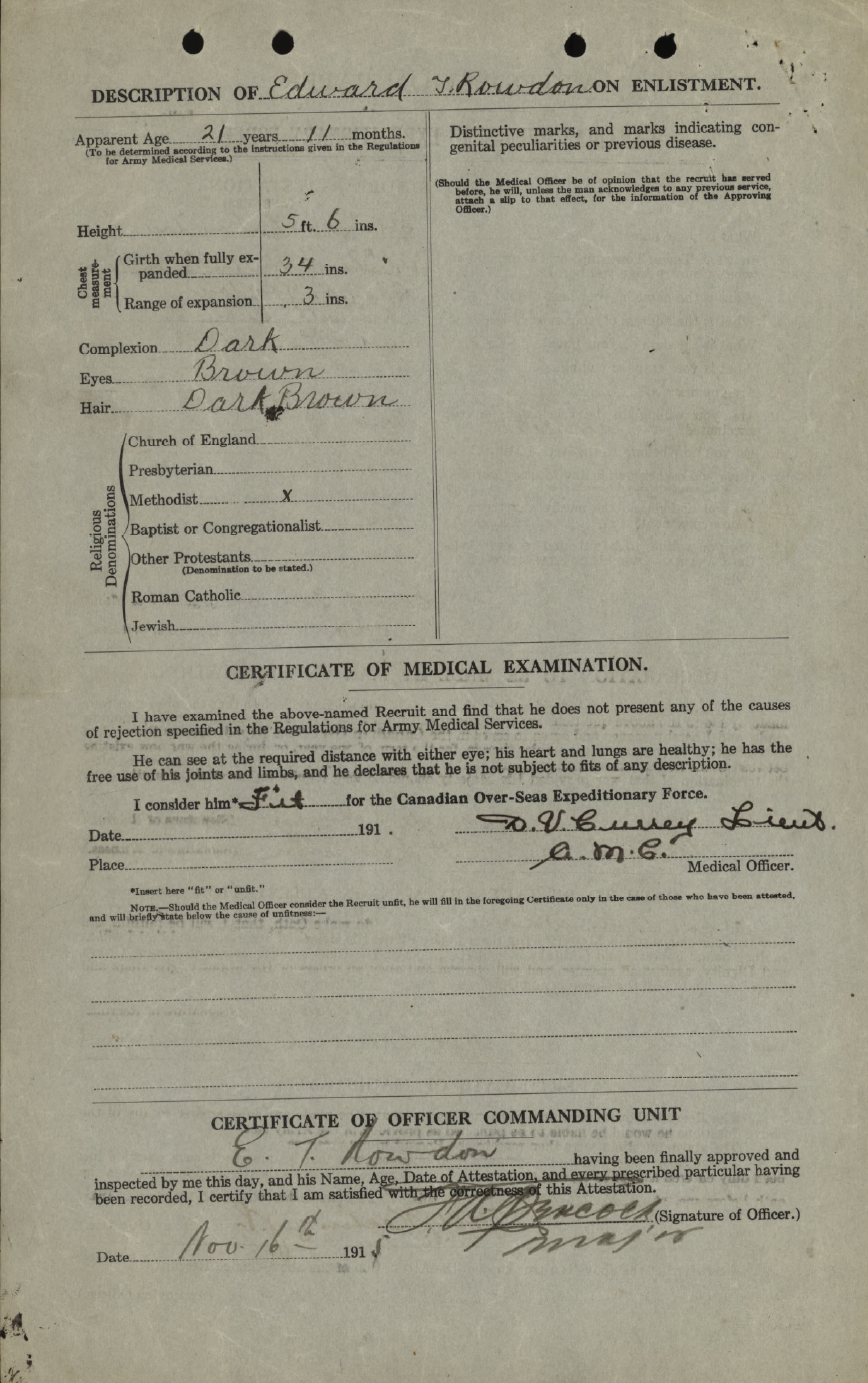 DESCRIPTION OF Edward T. Rowdon ON ENLISTMENT.
Apparent Age 21 years 11 months.
(To be determined according to the instructions given in the Regulations
for Army Medical Services.)
Height 5 ft. 6 ins.
Chest measure-ment
Girth when fully ex-
panded 34 ins.
Range of expansion 3 ins.
Complexion Dark
Eyes Brown
Hair Dark Brown
Religious Denominations
Church of England
Presbyterian
Methodist x
Baptist or Congregationalist
Other Protestants
(Denomination to be stated.)
Roman Catholic
Jewish
Distinctive marks, and marks indicating con-
genital peculiarities or previous disease.
(Should the Medical Officer be of opinion that the recruit has served
before, he will, unless the man acknowledges to any previous service,
attach a slip to that effect, for the information of the Approving
Officer.)
CERTIFICATE OF MEDICAL EXAMINATION.
I have examined the above-named Recruit and find that he does not present any of the causes
of rejection specified in the Regulations for Army Medical Services.
He can see at the required distance with either eye; his heart and lungs are healthy; he has the
free use of his joints and limbs, and he declares that he is not subject to fits of any description.
I consider him* Fit for the Canadian Over-Seas Expeditionary Force.
Date 191 . D. V. Currey Lieut.
A. M. C.
Place Medical Officer.
*Insert here "fit" or "unfit."
NOTE.—Should the Medical Officer consider the Recruit unfit, he will fill in the foregoing Certificate only in the case of those who have been attested,
and will briefly state below the cause of unfitness:—
CERTIFICATE OF OFFICER COMMANDING UNIT
E. T. Rowdon having been finally approved and
inspected by me this day, and his Name, Age, Date of Attestation, and every prescribed particular having
been recorded, I certify that I am satisfied with the correctness of this Attestation.
(Signature of Officer.)
Major
Date Nov. 16th 1915